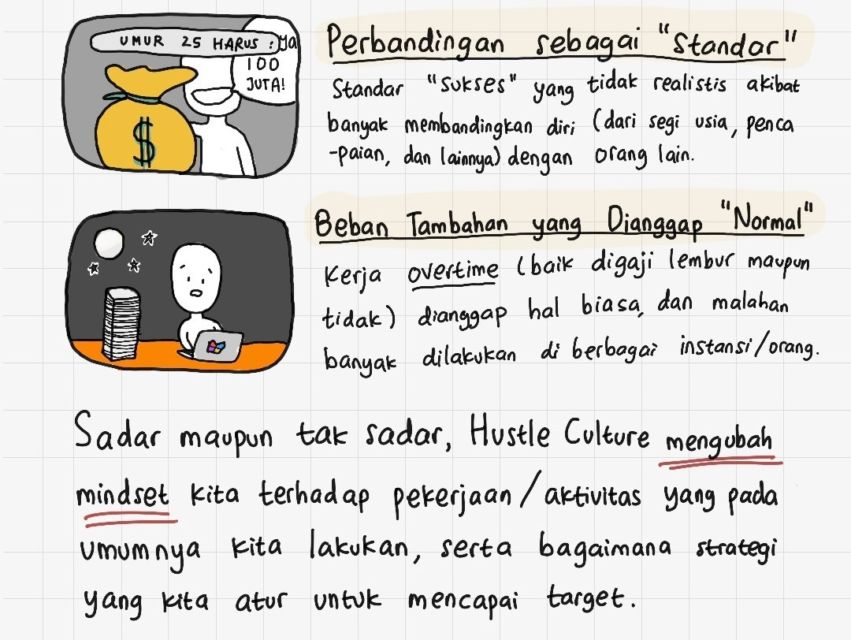 UMUR 25 HARUS : ya
100
JUTA!
$
Perbandingan sebagai "Standar"
Standar "sukses" yang tidak realistis akibat
banyak membandingkan diri (dari segi usia, penca
-paian, dan lainnya) dengan orang lain.
Beban Tambahan yang Dianggap "Normal"
Kerja overtime (baik digaji lembur maupun
tidak) dianggap hal biasa, dan malahan
banyak dilakukan di berbagai instansi/orang.
Sadar maupun tak sadar, Hustle Culture mengubah
mindset kita terhadap pekerjaan/aktivitas yang pada
umumnya kita lakukan, serta bagaimana strategi
yang kita atur untuk mencapai target.